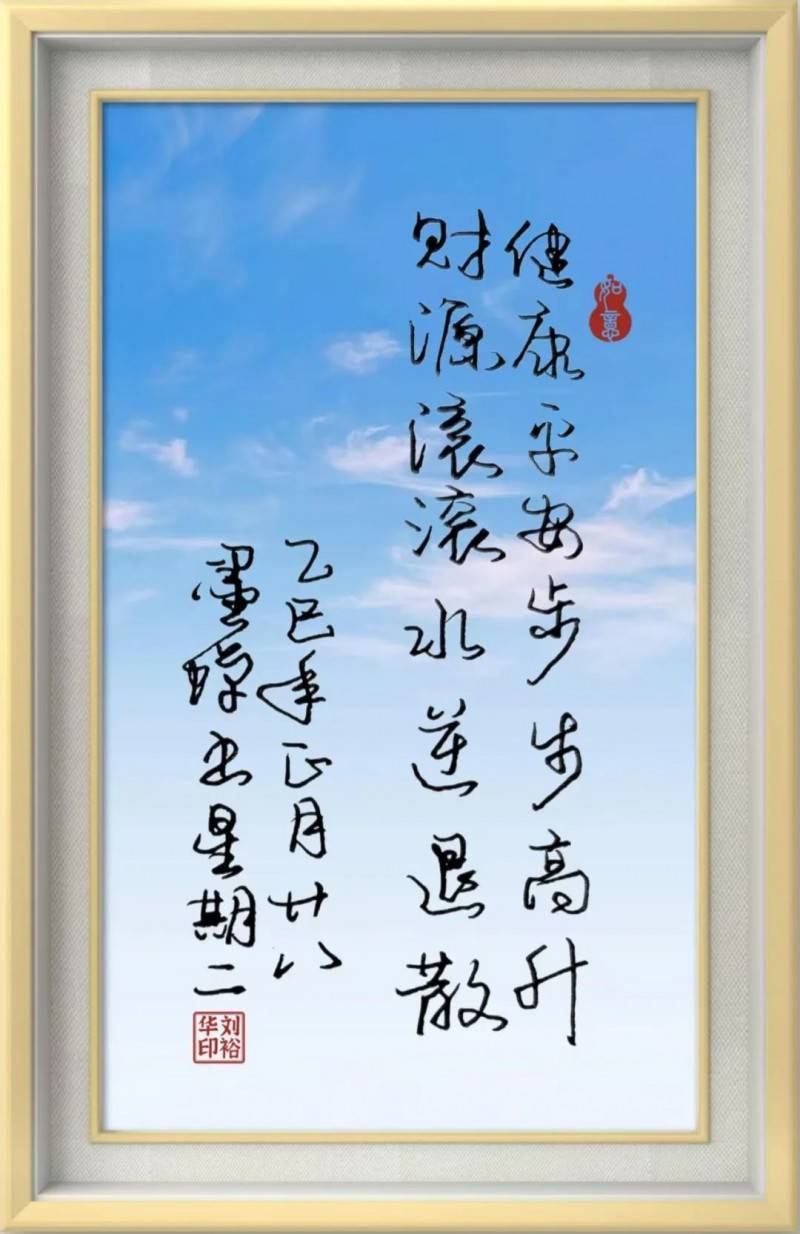 如意
健康平安步步高升
财源滚滚水逆退散
乙巳年正月廿八
墨璋书星期二
刘裕华印